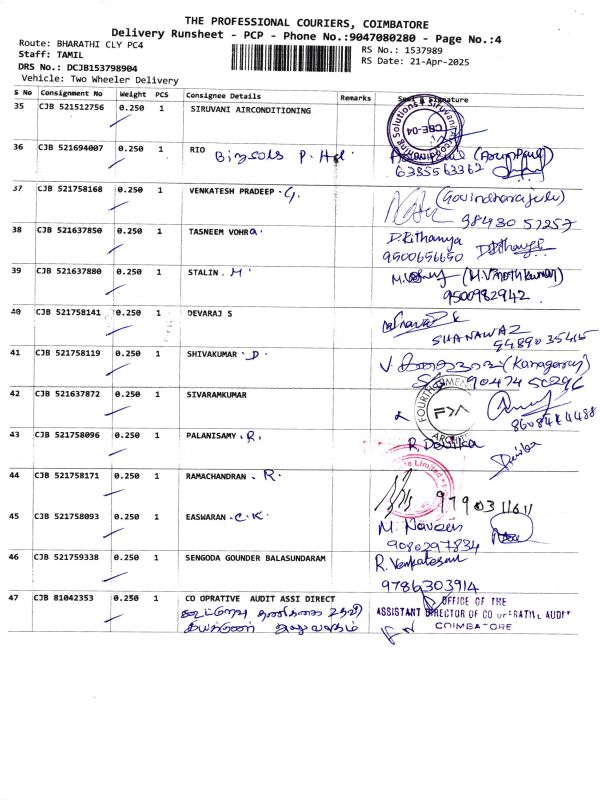 THE PROFESSIONAL COURIERS, COIMBATORE
Delivery Runsheet - PCP - Phone No.:9047080280 - Page No.:4
Route: BHARATHI CLY PC4
RS No.: 1537989
Staff: TAMIL
RS Date: 21-Apr-2025
DRS No.: DCJB153798904
Vehicle: Two Wheeler Delivery
S No Consignment No Weight PCS Consignee Details Remarks Signature
35 CJB 521512756 0.250 1 SIRUVANI AIRCONDITIONING
CBE-04
36 CJB 521694007 0.250 1 RIO
6385563362
37 CJB 521758168 0.250 1 VENKATESH PRADEEP .G. (Govindharajulu)
98430 57257
38 CJB 521637850 0.250 1 TASNEEM VOHRa. D.Rithanya
9500656650
39 CJB 521637880 0.250 1 STALIN . M. (M.Vinothkumar)
9500982942
40 CJB 521758141 0.250 1 DEVARAJ S
SHANAWAZ
9489035415
41 CJB 521758119 0.250 1 SHIVAKUMAR .D. (Kanagaraj)
90474 50296
42 CJB 521637872 0.250 1 SIVARAMKUMAR
43 CJB 521758096 0.250 1 PALANISAMY .R.
44 CJB 521758171 0.250 1 RAMACHANDRAN . R.
45 CJB 521758093 0.250 1 EASWARAN .C.K. M. Naveen
9080297834
46 CJB 521759338 0.250 1 SENGODA GOUNDER BALASUNDARAM R. Venkatesan
9786303914
47 CJB 81042353 0.250 1 CO OPRATIVE AUDIT ASSI DIRECT
கூட்டுறவு தணிக்கை உதவி
இயக்குனர் அலுவலகம்
OFFICE OF THE
ASSISTANT DIRECTOR OF CO OPERATIVE AUDIT
COIMBATORE